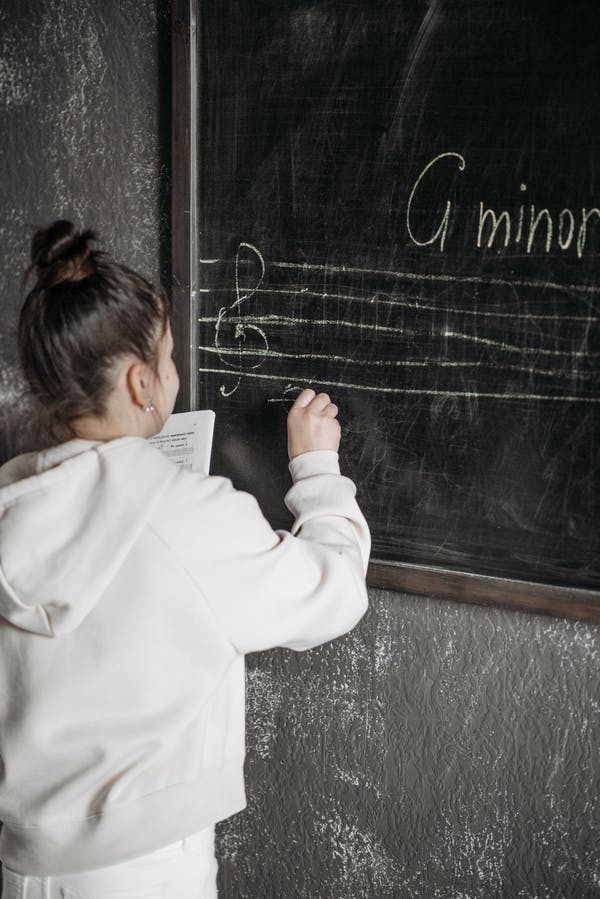 G minor